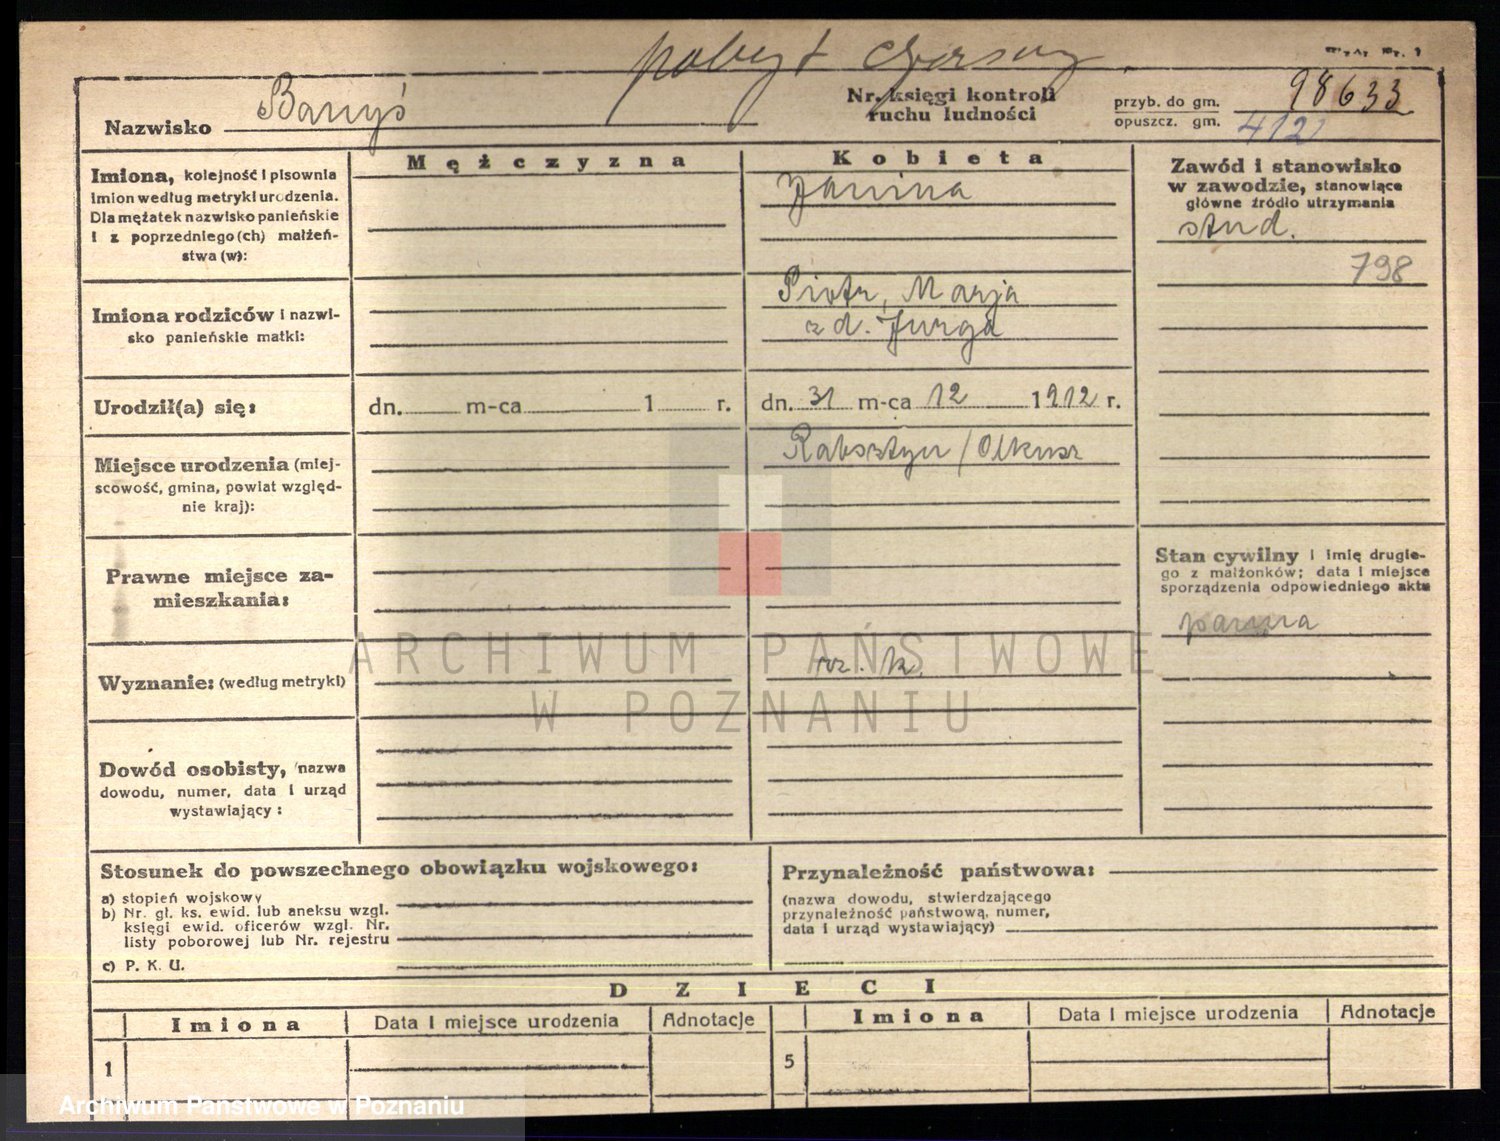 pobyt czasowy
Nazwisko Banyś
Nr. księgi kontroli
ruchu ludności
przyb. do gm. 98633
opuszcz. gm. 4121
Imiona, kolejność i pisownia
imion według metryki urodzenia.
Dla mężatek nazwisko panieńskie
i z poprzedniego(ch) małżeń-
stwa (w):
Mężczyzna
Kobieta
Janina
Zawód i stanowisko
w zawodzie, stanowiące
główne źródło utrzymania
stud.
798
Imiona rodziców i nazwi-
sko panieńskie matki:
Piotr, Marja
z d. Jurga
Urodził(a) się:
dn. m-ca 1 r.
dn. 31 m-ca 12 1912 r.
Miejsce urodzenia (miej-
scowość, gmina, powiat względ-
nie kraj):
Rabsztyn / Olkusz
Prawne miejsce za-
mieszkania:
Stan cywilny i imię drugie-
go z małżonków; data i miejsce
sporządzenia odpowiedniego aktu
panna
Wyznanie: (według metryki)
rz. k.
ARCHIWUM PAŃSTWOWE
W POZNANIU
Dowód osobisty, nazwa
dowodu, numer, data i urząd
wystawiający:
Stosunek do powszechnego obowiązku wojskowego:
a) stopień wojskowy
b) Nr. gł. ks. ewid. lub aneksu wzgl.
księgi ewid. oficerów wzgl. Nr.
listy poborowej lub Nr. rejestru
c) P. K. U.
Przynależność państwowa:
(nazwa dowodu, stwierdzającego
przynależność państwową, numer,
data i urząd wystawiający)
DZIECI
Imiona Data i miejsce urodzenia Adnotacje Imiona Data i miejsce urodzenia Adnotacje
1 5
Archiwum Państwowe w Poznaniu